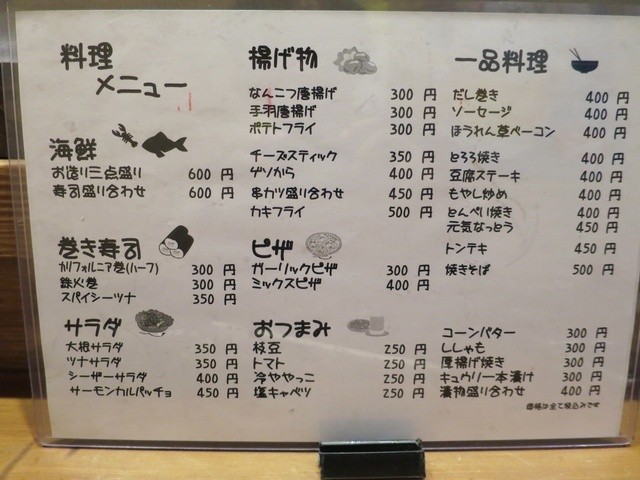 料理
メニュー
海鮮
お造り三点盛り 600 円
寿司盛り合わせ 600 円
巻き寿司
カリフォルニア巻(ハーフ) 300 円
鉄火巻 300 円
スパイシーツナ 350 円
サラダ
大根サラダ 350 円
ツナサラダ 350 円
シーザーサラダ 400 円
サーモンカルパッチョ 450 円
揚げ物
なんこつ唐揚げ 300 円
手羽唐揚げ 300 円
ポテトフライ 300 円
チーズスティック 350 円
ゲソから 400 円
串カツ盛り合わせ 450 円
カキフライ 500 円
ピザ
ガーリックピザ 300 円
ミックスピザ 400 円
おつまみ
枝豆 250 円
トマト 250 円
冷ややっこ 250 円
塩キャベツ 250 円
一品料理
だし巻き 400 円
ソーセージ 400 円
ほうれん草ベーコン 400 円
とろろ焼き 400 円
豆腐ステーキ 400 円
もやし炒め 400 円
とんぺい焼き 400 円
元気なっとう 450 円
トンテキ 450 円
焼きそば 500 円
コーンバター 300 円
ししゃも 300 円
厚揚げ焼き 300 円
キュウリ一本漬け 300 円
漬物盛り合わせ 400 円
価格は全て税込みです